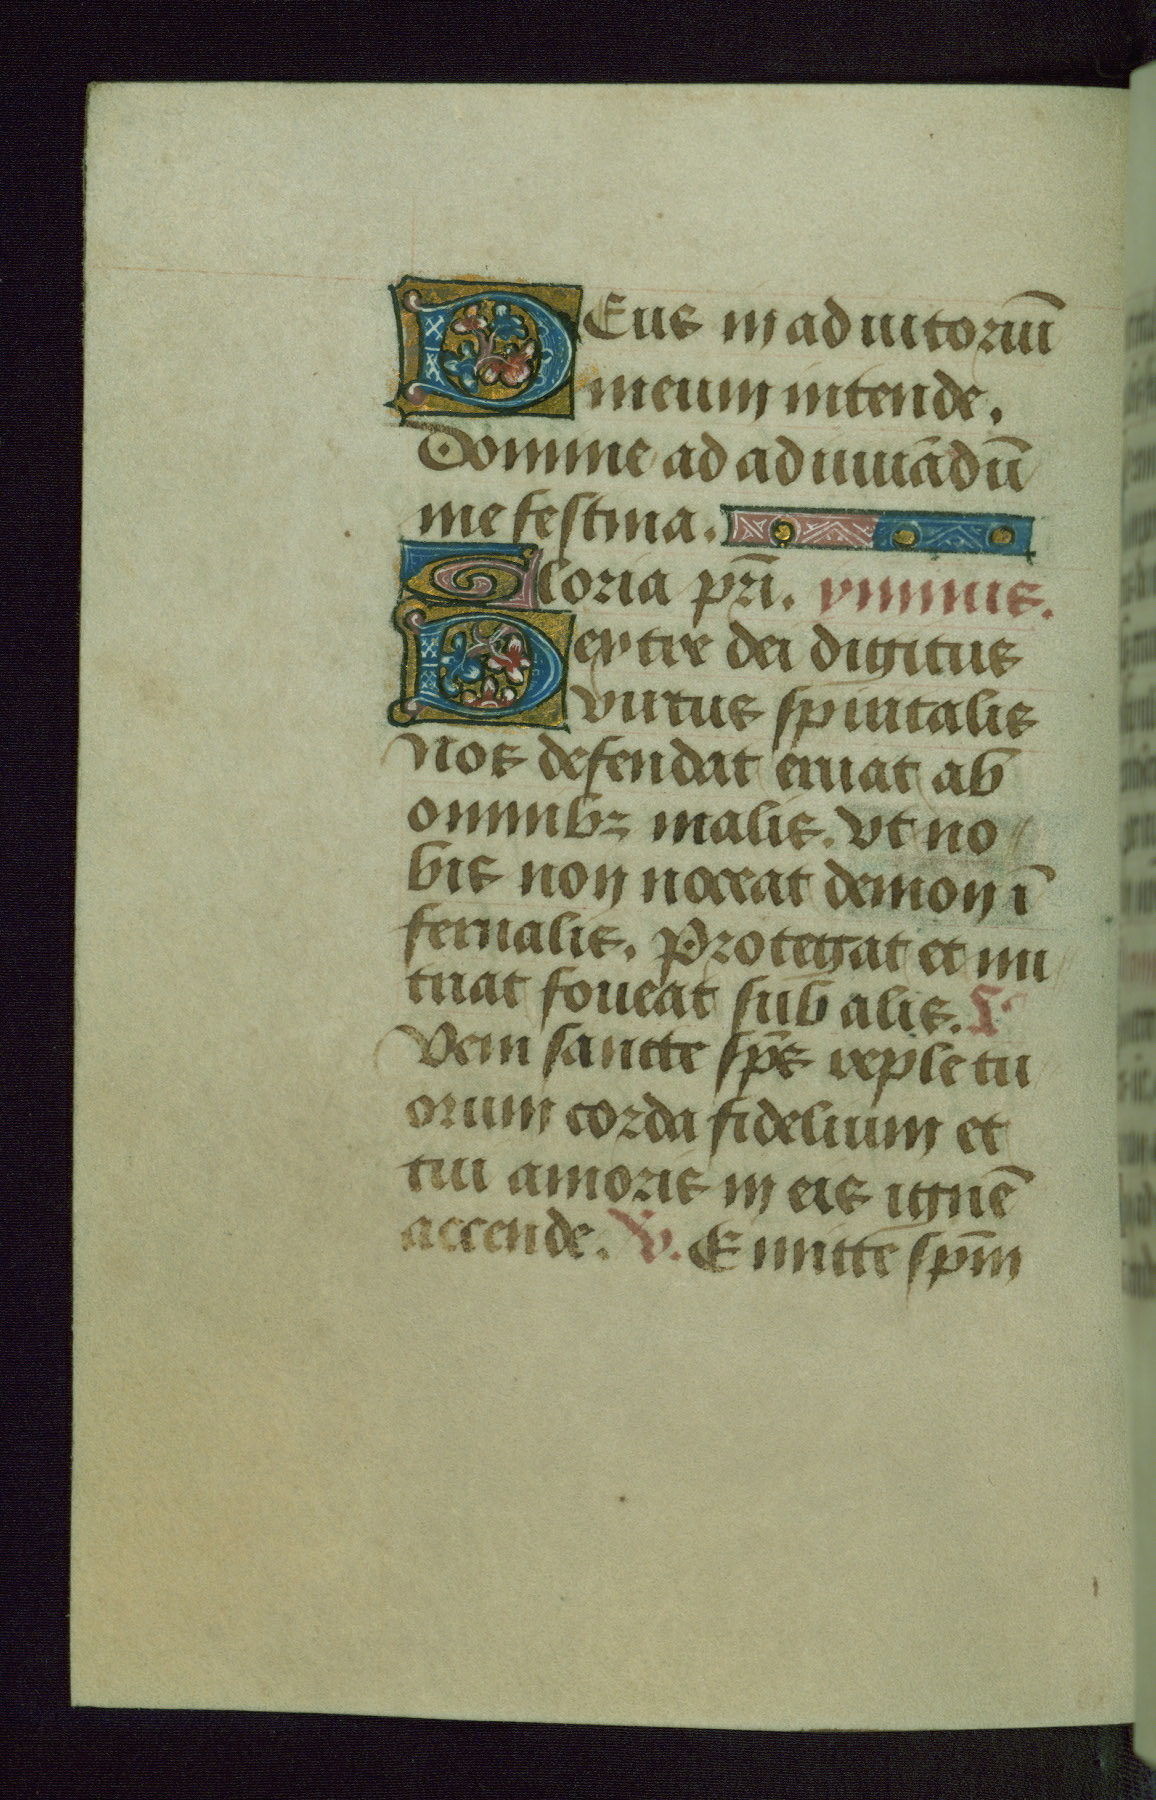 DEus in adiutoriū
meum intende.
Domine ad adiuuādū
me festina.
Gloria pr̄i. ymnus.
Dextre dei digitus
virtus spiritalis
nos defendat eruat ab
omnibꝫ malis. Vt no
bis non noceat demon ī
fernalis. Protegat et nu
triat foueat sub alis.
Veni sancte sp̄s reple tu
orum corda fidelium et
tui amoris in eis ignē
accende. V. Emitte sp̄m